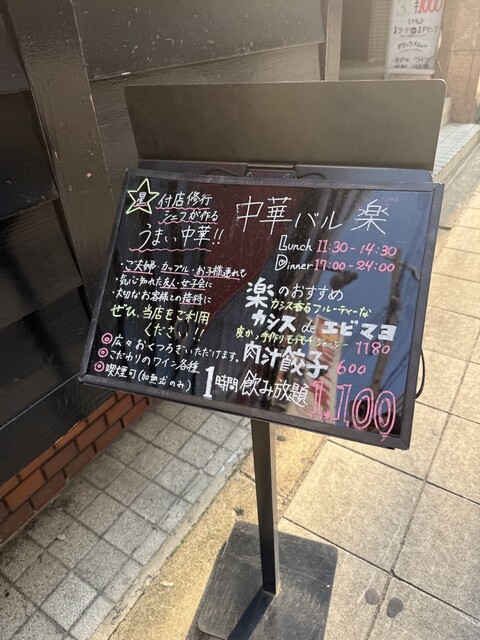 星付店修行
シェフが作る
うまい中華!!
・ご夫婦・カップル・お子様連れも
・気心知れた友人・女子会に
・大切なお客様との接待に
ぜひ、当店をご利用
ください!!
◎広々おくつろぎいただけます。
◎こだわりのワイン各種
◎喫煙可(加熱式のみ)
中華バル 楽
Lunch 11:30-14:30
Dinner 17:00-24:00
楽のおすすめ
カシス香るフルーティーな
カシス de エビマヨ
1180
皮から手作りモチモチジューシー
肉汁餃子 600
1時間飲み放題
1,100
¥1000